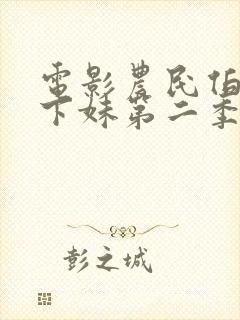 電影農民伯
下妹第二季
彭之城